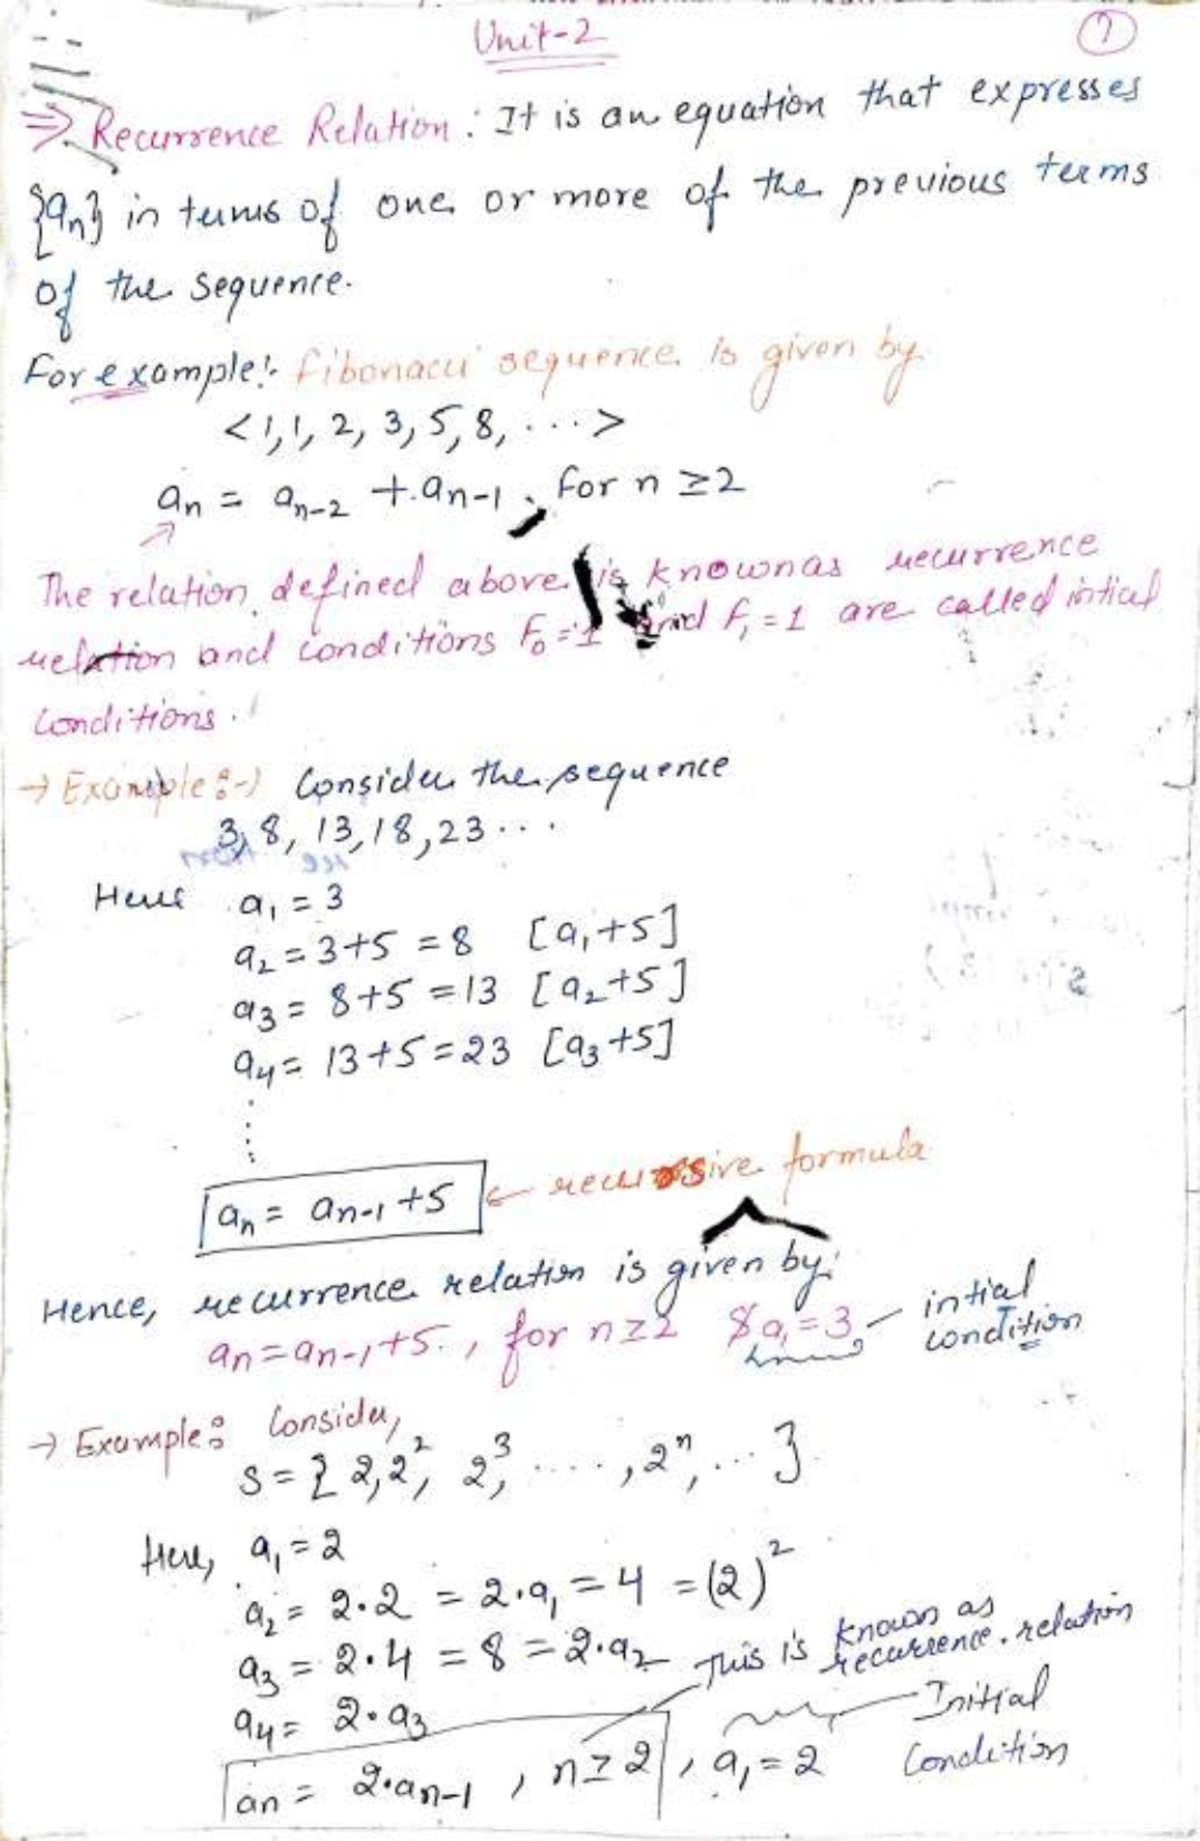 Unit-2
⇒ Recurrence Relation : It is an equation that expresses
{an} in terms of one or more of the previous terms
of the sequence.
For example:- fibonacci sequence is given by
<1,1, 2, 3, 5, 8, ....>
an = an-2 + an-1, for n ≥2
The relation defined above is known as recurrence
relation and conditions F0 = 1 and F1 = 1 are called intial
conditions.
→ Example:-) Consider the sequence
3, 8, 13, 18, 23...
Here a1 = 3
a2 = 3+5 = 8 [a1+5]
a3 = 8+5 = 13 [a2+5]
a4 = 13+5 = 23 [a3+5]
an = an-1 +5 ← recursive formula
Hence, recurrence relation is given by:
an = an-1+5., for n≥2 & a1 = 3 intial
condition
→ Example: Consider,
S = { 2, 2², 2³, ...., 2ⁿ, ... }
Here, a1 = 2
a2 = 2·2 = 2·a1 = 4 = (2)²
a3 = 2·4 = 8 = 2·a2 This is known as
recurrence relation
a4 = 2·a3 Initial
an = 2·an-1 , n≥2 , a1 = 2 Condition